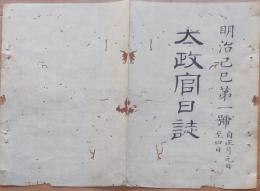 明治己巳第一號 自正月元日
至四日
太政官日誌